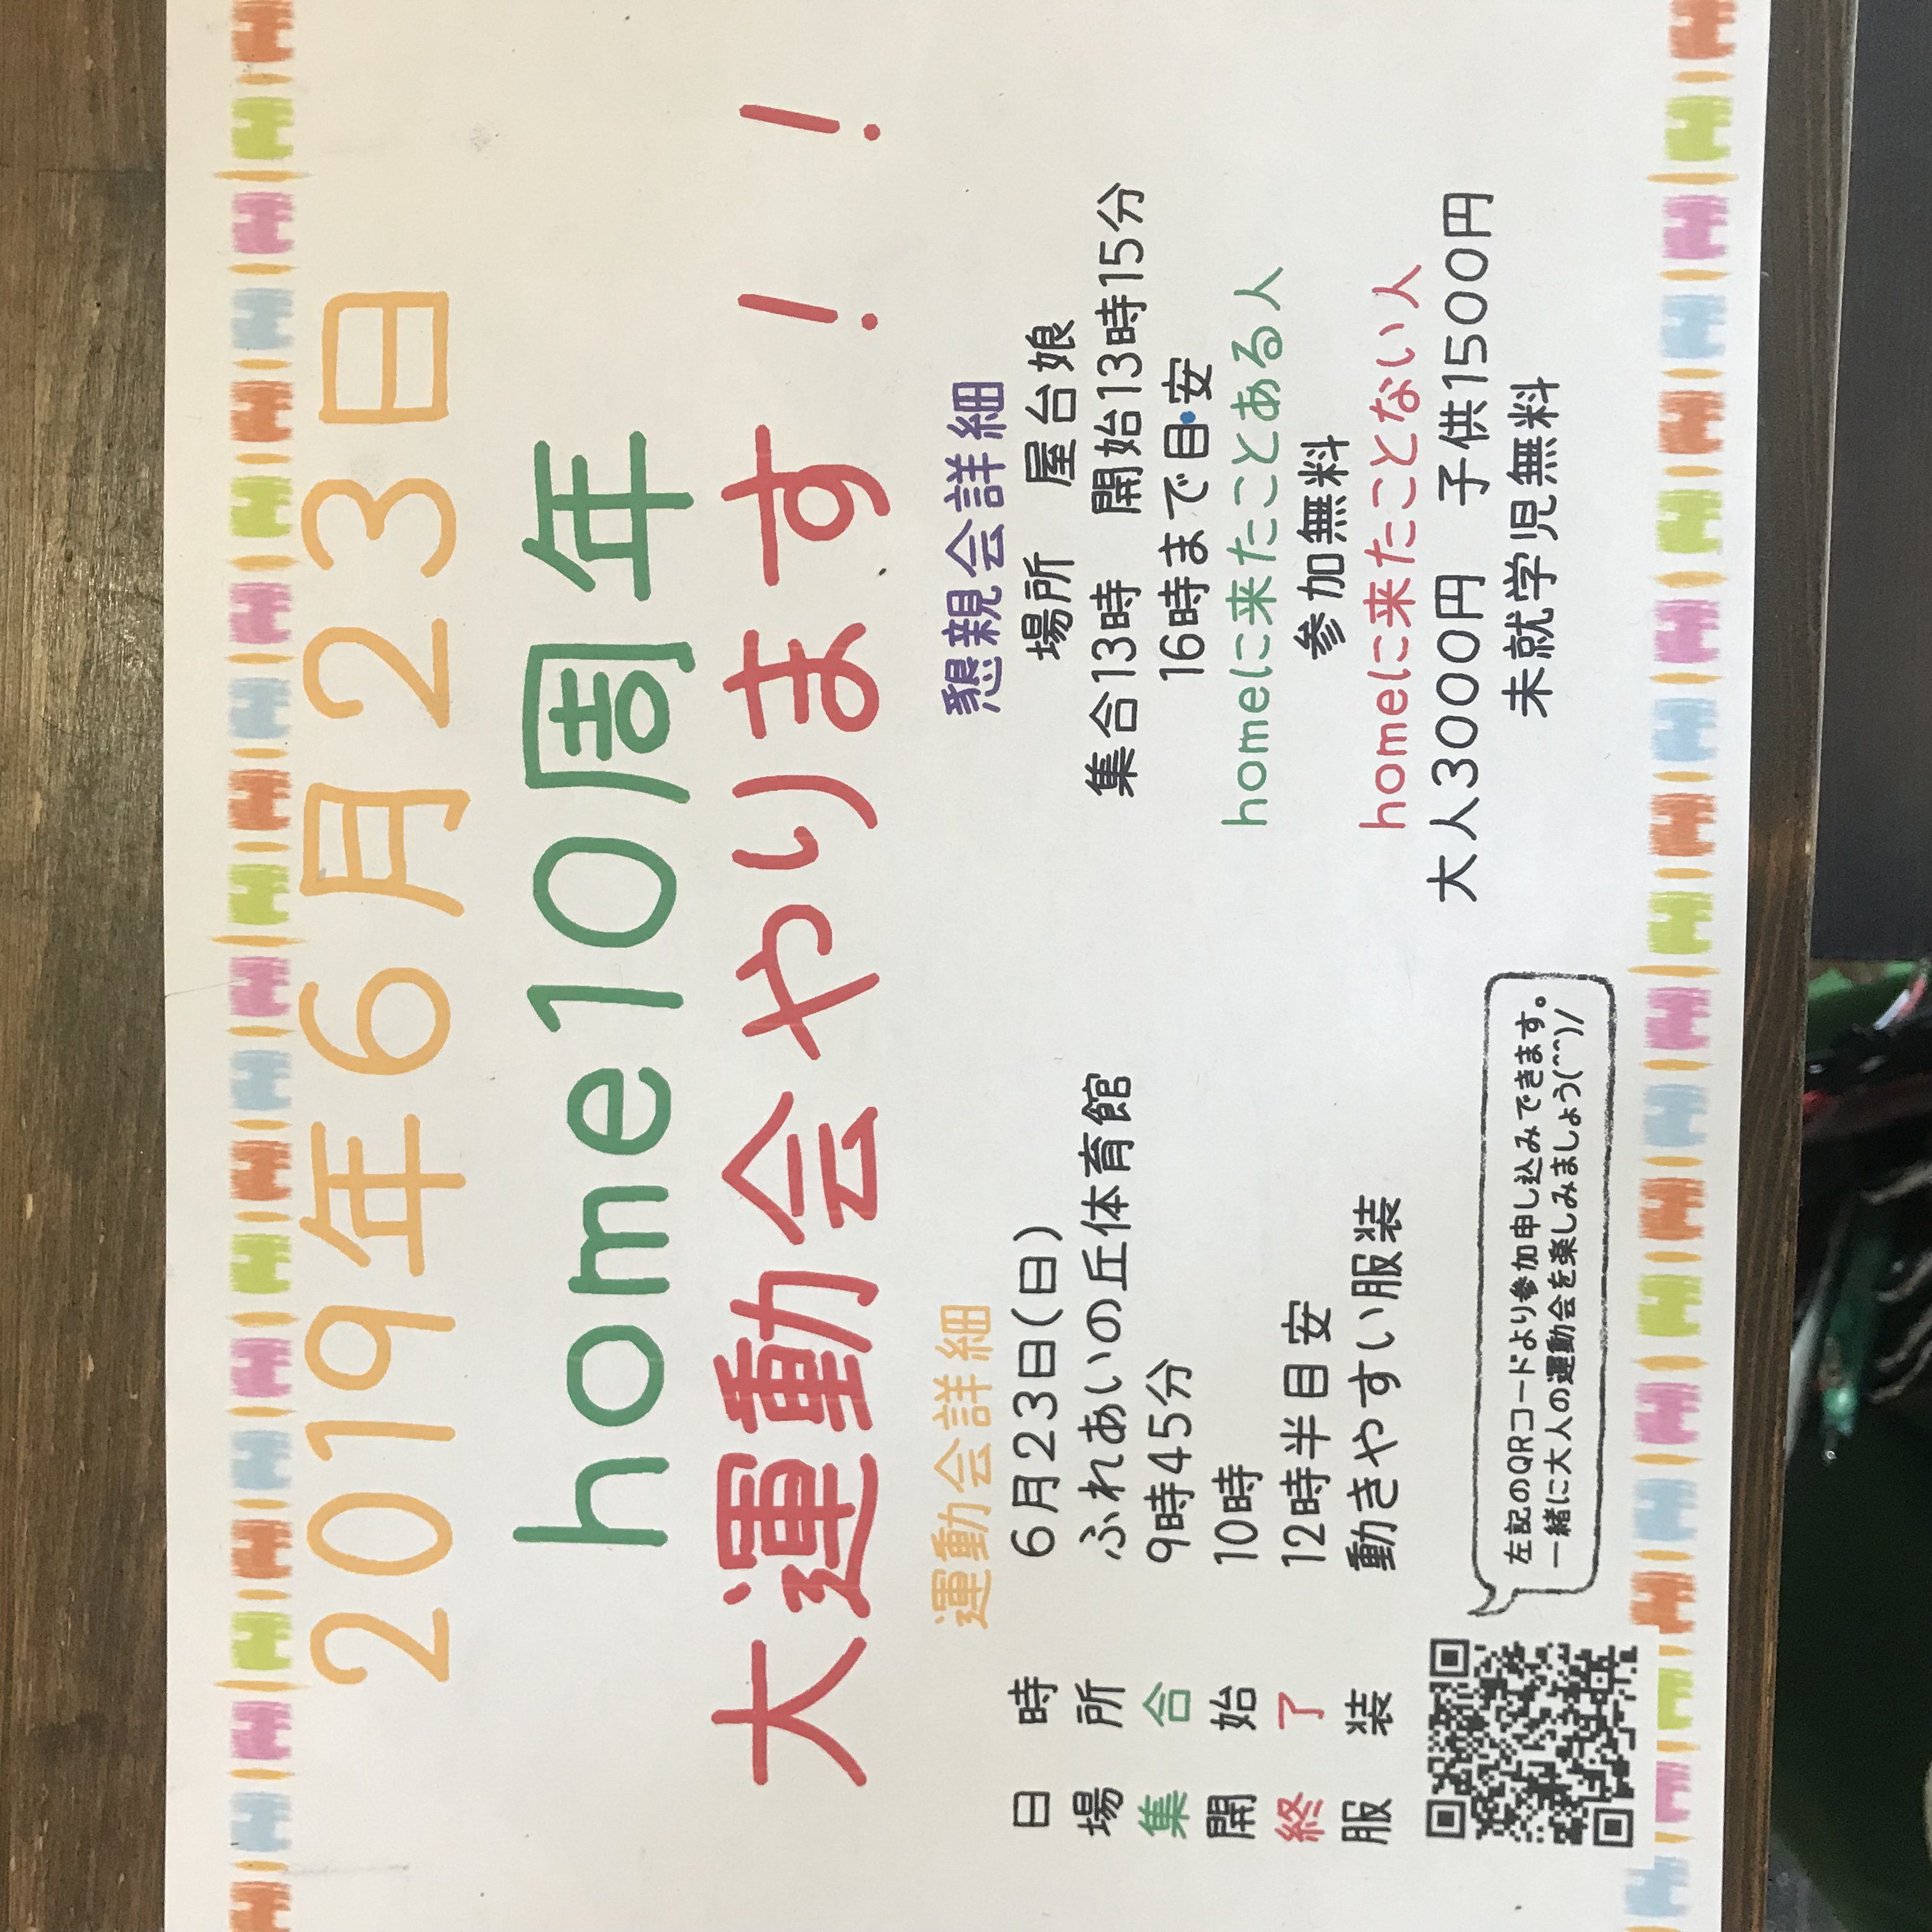 2019年6月23日
home10周年
大運動会やります！！
運動会詳細
日時 6月23日(日)
場所 ふれあいの丘体育館
集合 9時45分
開始 10時
終了 12時半目安
服装 動きやすい服装
左記のQRコードより参加申し込みできます。
一緒に大人の運動会を楽しみましょう(^^)/
懇親会詳細
場所 屋台娘
集合13時 開始13時15分
16時まで目安
homeに来たことある人
参加無料
homeに来たことない人
大人3000円 子供1500円
未就学児無料